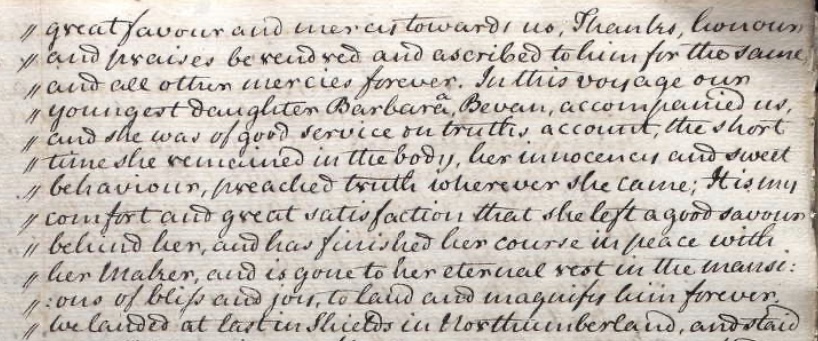 〃 great favour and mercis towards us, Thanks, honour
〃 and praises be rendred and ascribed to him for the same
〃 and all other mercies forever. In this voyage our
〃 youngest daughter Barbara, Bevan, accompanied us,
〃 and she was of good service on truths account, the short
〃 time she remained in the body, her innocency and sweet
〃 behaviour, preached truth wherever she came; It is my
〃 comfort and great satisfaction that she left a good savour
〃 behind her, and has finished her course in peace with
〃 her Maker, and is gone to her eternal rest in the mansi:
〃 :ons of bliss and joy, to laud and magnify him forever.
〃 We landed at East in Shields in Northumberland, and staid